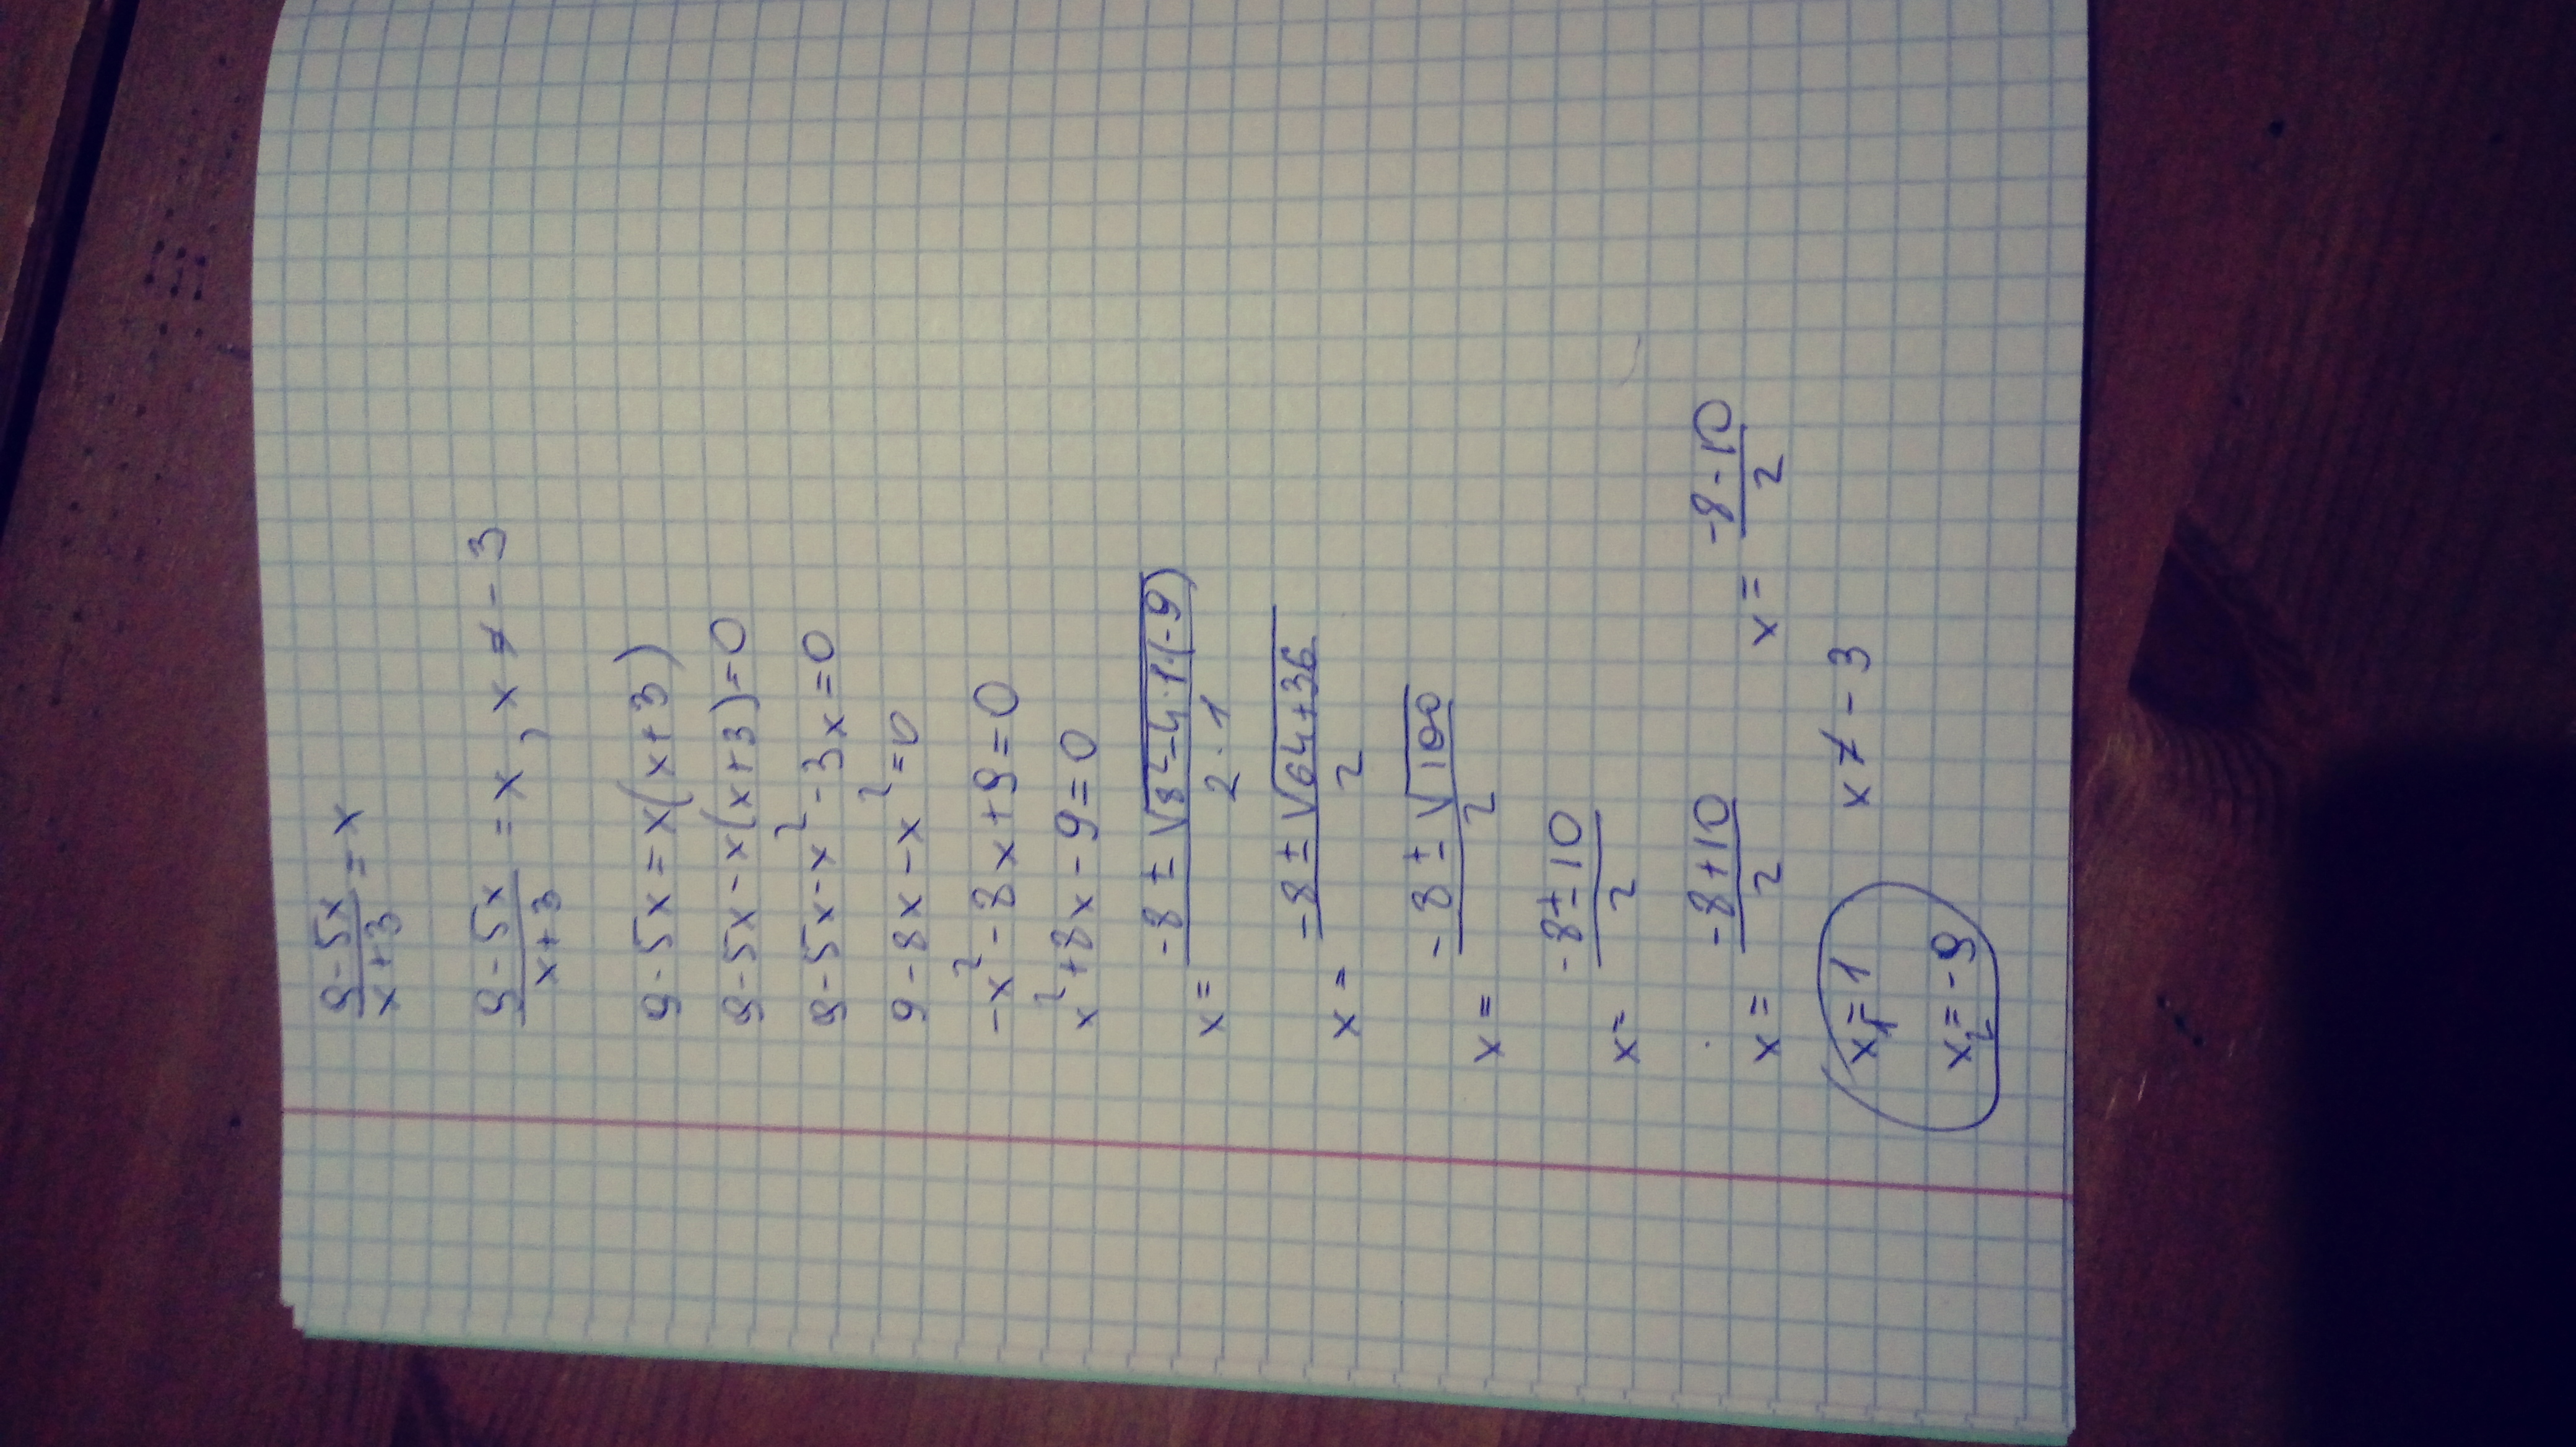 9-5x/x+3 = x
9-5x/x+3 = x, x ≠ -3
9-5x = x(x+3)
9-5x-x(x+3)=0
9-5x-x²-3x=0
9-8x-x²=0
-x²-8x+9=0
x²+8x-9=0
x= -8±√8²-4·1·(-9)/2·1
x= -8±√64+36/2
x= -8±√100/2
x= -8±10/2
x= -8+10/2 x= -8-10/2
x₁=1 x≠-3
x₂=-9